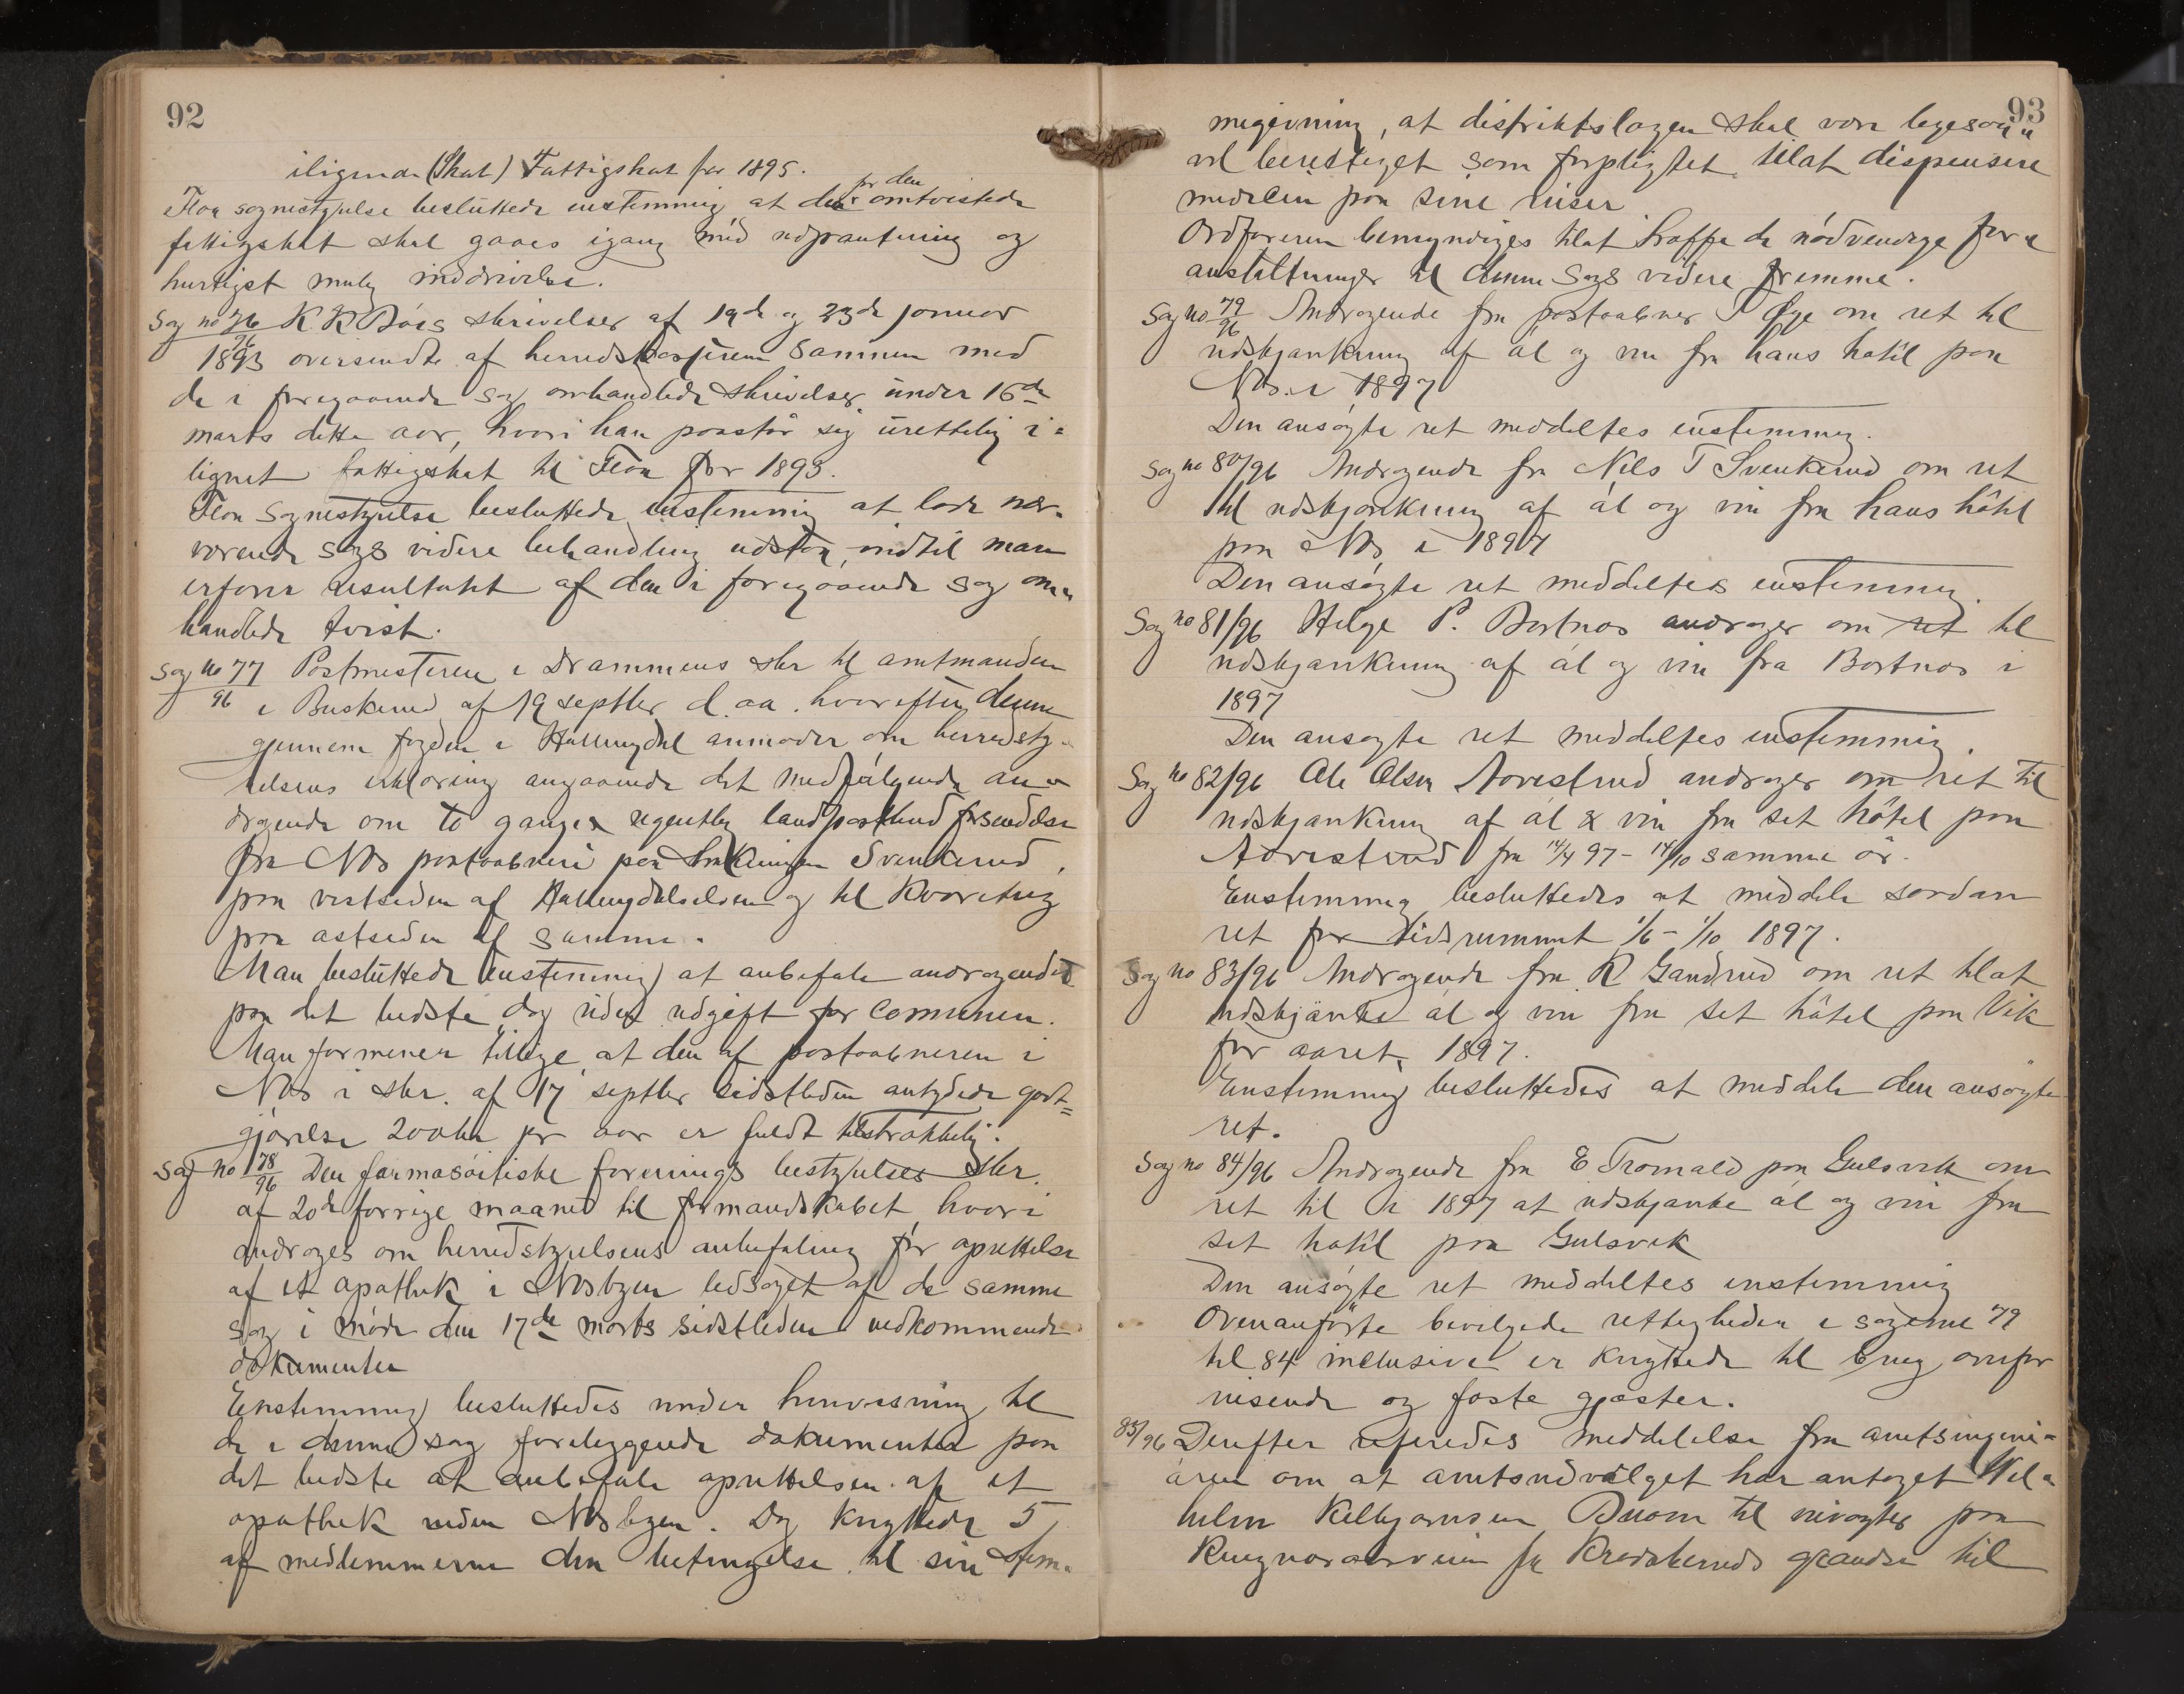 92
ilignede (Skat) Fattigskat for 1895.
Flaa sognestyrelse besluttede enstemmig at den for den omtvistede
fattigskat skal gaaes igang med udpantning og
hurtigst mulig inddrivelse.
Sag no 76/96 K. R. Bøes skrivelser af 19de og 23de januar
1893 oversendte af herredskassereren sammen med
de i foregaaende sag omhandlede skrivelser under 16de
marts dette aar, hvori han paastår sig urettelig i-
lignet fattigskat til Flaa for 1893.
Flaa Sognestyrelse besluttede enstemmig at lade nær-
værende sags videre behandling udstaa, indtil man
erfarer resultatet af den i foregaaende sag om-
handlede tvist.
Sag no 77/96 Postmesteren i Drammens skr til amtmanden
i Buskerud af 19 septbr d. aa. hvorefter denne
gjennem fogden i Hallingdal anmoder om herredsty-
relsens erklæring angaaende det medfølgende an-
dragende om to ganger ugentlig landpostbud forsendelse
fra Næs postaabneri paa strækningen Svenkerud,
paa vestsiden af Hallingdalselven og til
paa østsiden af samme.
Man besluttede enstemmig at anbefale andragendet
paa det bedste dog uden udgift for Communen.
Man formener tillige at den af postaabneren i
Næs i skr. af 17 septbr sidstleden antydede godt=
gjørelse 200 kr pr aar er fuldt tilstrækkelig.
Sag no 78/96 Den farmasöitiske forenings bestyrelses skr.
af 20de forrige maaned til formandskabet, hvori
andrages om herredstyrelsens anbefaling for oprettelse
af et apothek i Næsbyen ledsaget af de samme
sag i møde den 17de marts sidstleden vedkommende
dokumenter
Enstemmig besluttedes under henvisning til
de i denne sag foreliggende dokumenter paa
det bedste at anbefale oprettelsen af et
apothek i Næsbyen. Dog knyttede 5
af medlemmerne den betingelse til sin stem-
93
megivning, at distriktslægen skal være ligesaa
vel berettiget som forpligtet tilat dispensere
medecin paa sine reiser
Ordføreren bemyndiges tilat træffe de nödvendige for-
anstaltninger til denne sags videre fremme.
Sag no 79/96 Andragende fra postaabner T Øye om ret til
udskjænkning af øl og vin fra hans hotel paa
Næs i 1897
Den ansøgte ret meddeltes enstemmig.
Sag no 80/96 Andragende fra Nils T Svenkerud om ret
til udskjænkning af øl og vin fra hans hôtel
paa Næs i 1897
Den ansøgte ret meddeltes enstemmig.
Sag no 81/96 Helge P. Bortnæs andrager om ret til
udskjænkning af øl og vin fra Bortnæs i
1897
Den ansøgte ret meddeltes enstemmig.
Sag no 82/96 Ole Olsen Aavestrud andrager om ret til
udskjænkning af øl & vin fra set hôtel paa
Aavestrud fra 14/4 97 - 14/10 samme år.
Enstemmig besluttedes at meddele saadan
ret for tidsrummet 1/6 - 1/10 1897.
Sag no 83/96 Andragende fra R Gandrud om ret tilat
udskjänke øl og vin fra set hôtel paa Vik
for aaret 1897.
Enstemmig besluttedes at meddele den ansøgte
ret.
Sag no 84/96 Andragende fra E Tromald paa Gulsvik om
ret til i 1897 at udskjænke øl og vin fra
set hotel paa Gulsvik
Den ansøgte ret meddeltes enstemmig
Ovenanførte bevilgede rettigheder i sagerne 79
til 84 inclusive er knyttede til brug for
reisende og faste gjæster.
85/96 Derefter refereredes meddelelse fra amtsingeni-
øren om at amtsudvalget har antaget Wil-
helm Kolbjørnsen Bruom til veivogter paa
fra Krødsherreds grændse til